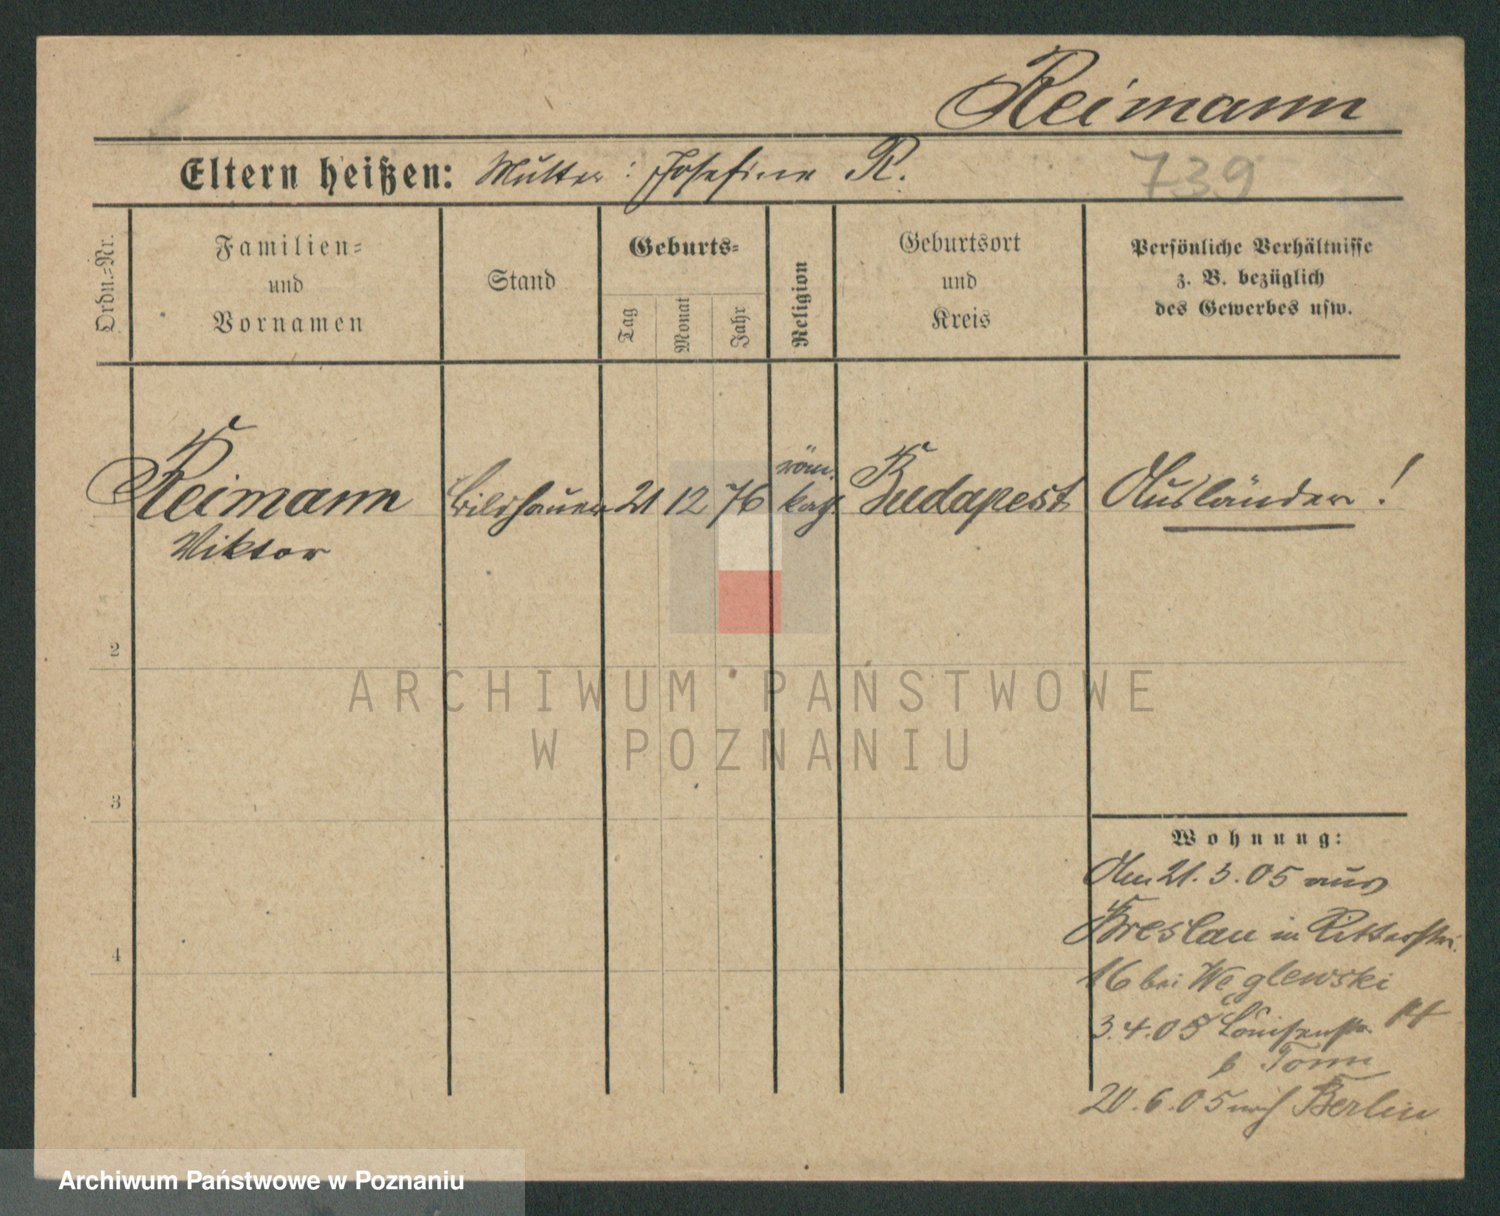 Reimann
Eltern heißen: Mutter: Josefine R.
739
Ordn.-Nr.
Familien-
und
Vornamen
Stand
Geburts-
Tag
Monat
Jahr
Religion
Geburtsort
und
Kreis
Persönliche Verhältnisse
z. B. bezüglich
des Gewerbes usw.
Reimann
Viktor
Bildhauer
21
12
76
röm.
kath.
Budapest
Ausländer!
2
3
4
ARCHIWUM PAŃSTWOWE
W POZNANIU
Wohnung:
Am 21.3.05 aus
Breslau in Ritterstr.
16 bei Węglewski
3.4.05 Louisenstr.
b Tomm
20.6.05 nach Berlin
Archiwum Państwowe w Poznaniu